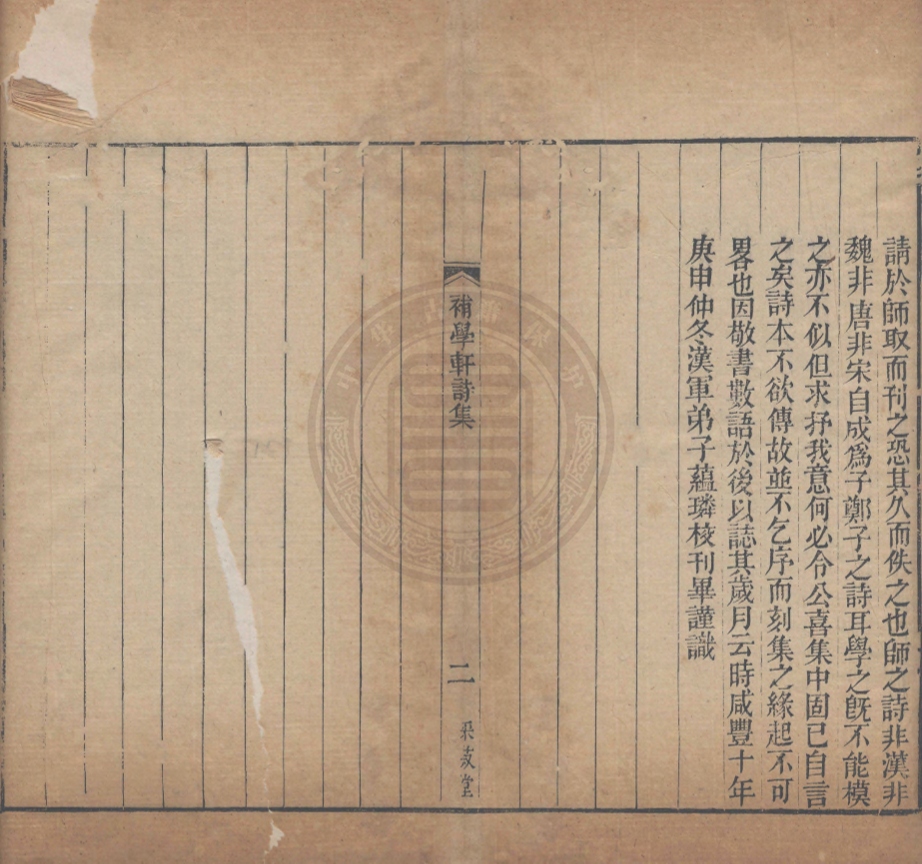 請於師取而刊之恐其久而佚之也師之詩非漢非
魏非唐非宋自成爲子鄭子之詩耳學之旣不能模
之亦不似但求抒我意何必令公喜集中固已自言
之矣詩本不欲傳故並不乞序而刻集之緣起不可
畧也因敬書數語於後以誌其歲月云時咸豐十年
庚申仲冬漢軍弟子蘊璘校刊畢謹識
補學軒詩集
二